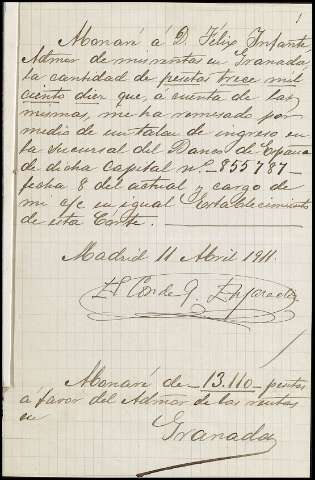 1
Abonaré á D. Félix Infante,
Admor de mis rentas en Granada,
la cantidad de pesetas trece mil
ciento diez que, á cuenta de las
mismas, me ha remesado por
medio de un talon de ingreso en
la sucursal del Banco de España
de dicha capital nº 855787-
fecha 8 del actual y cargo de
mi c/c en igual Establecimiento
de esta Corte.
Madrid 11 Abril 1911.
El Conde
Abonaré de -13.110- pesetas
á favor del Admor de las rentas
en
Granada